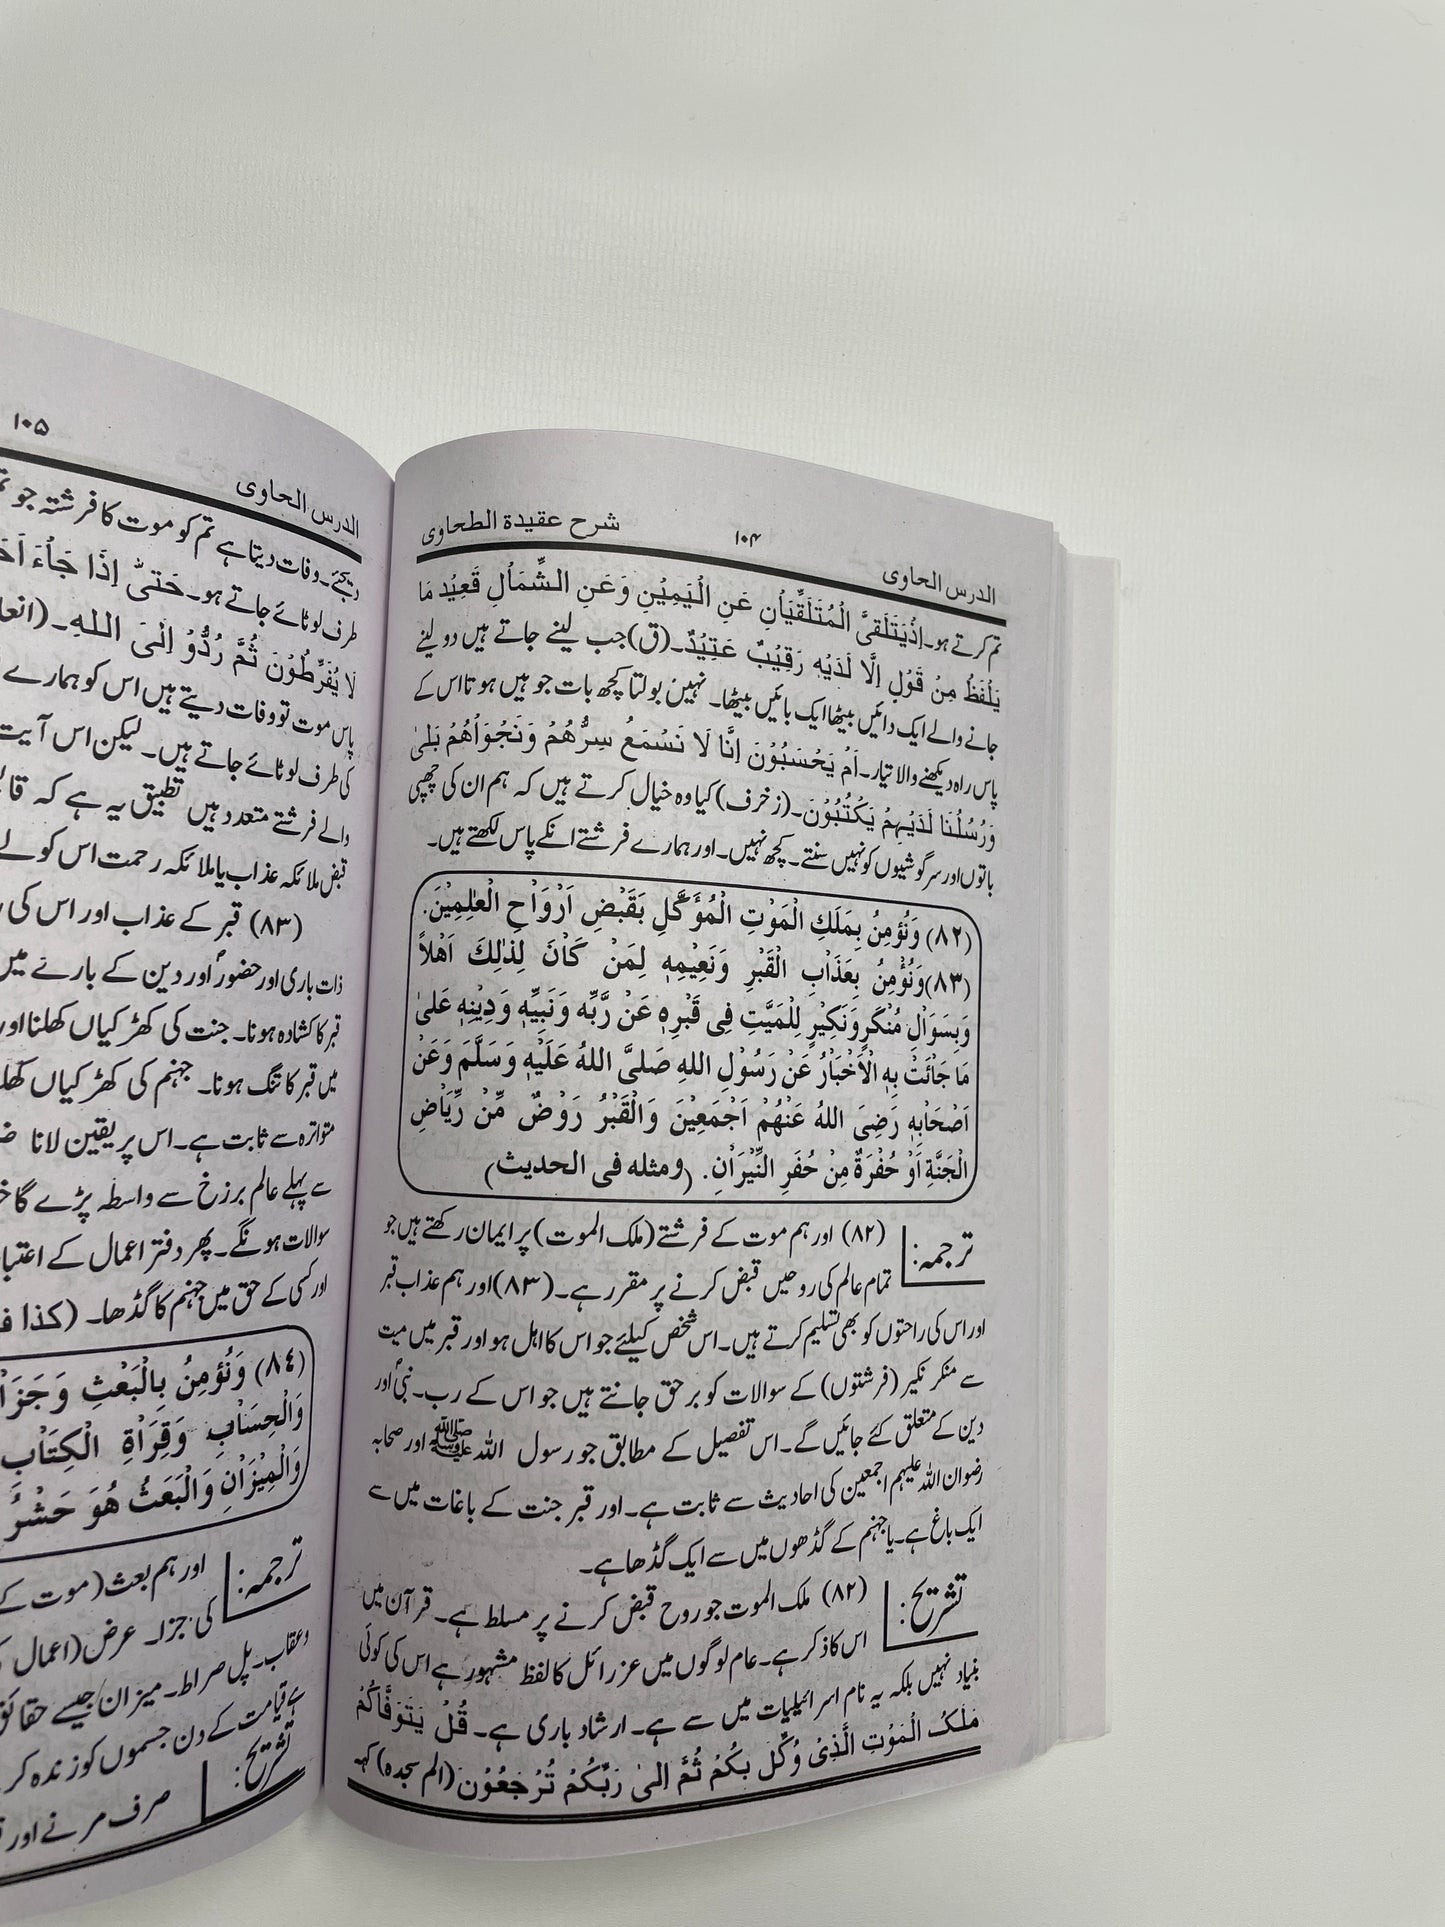 الدرس الحاوی ۱۰۴ شرح عقیدۃ الطحاوی
تم کرتے ہو۔ اِذۡیَتَلَقیَّ الۡمُتَلَقِّیَاٰنِ عَنِ الۡیَمِیۡنِ وَعَنِ الشِّمَاۡلِ قَعِیۡد مَا
یَلۡفَظُ مِنۡ قَوۡلِ اِلَّا لَدَیۡہِ رَقِیۡبٌ عَتِیۡدٌ۔(ق)جب لینے جاتے ہیں دو لینے
جانے والے ایک دائیں بیٹھا ایک بائیں بیٹھا۔ نہیں بولتا کچھ بات جو ہیں ہوتا اس کے
پاس راہ دیکھنے والا تیار۔اَمۡ یَحۡسَبُوۡنَ اِنَّا لَا نَسۡمَعُ سِرُّھُمۡ وَنَجۡوَاۡھُمۡ بَلیٰ
وَرُسُلُنَا لَدَیۡہِمۡ یَکۡتُبُوۡنَ۔(زخرف) کیا وہ خیال کرتے ہیں کہ ہم ان کی چھپی
باتوں اور سرگوشیوں کو نہیں سنتے۔ کچھ نہیں۔ اور ہمارے فرشتے انکے پاس لکھتے ہیں۔
(۸۲) وَنُؤۡمِنُ بِمَلَكِ الۡمَوۡتِ الۡمُؤَكَّلِ بَقَبۡضِ اَرۡوَاۡحِ الۡعٰلَمِیۡنَ.
(۸۳)وَنُؤۡمِنُ بِعَذَاۡبِ الۡقَبۡرِ وَنَعِیۡمِہٖ لِمَنۡ كَاۡنَ لِذٰلِكَ اَھۡلاً
وَبِسَوَاۡلِ مُنۡكَرٍوَنَكِیۡرٍ لِلۡمَیَّتِ فِی قَبۡرِہٖ عَنۡ رَّبِّہ وَنَبِیِّہٖ وَدِیۡنِہٖ عَلیٰ
مَا جَائَتۡ بِہٖ الۡاَخۡبَاۡرُ عَنۡ رَسُوۡلِ اللہِ صَلیَّ اللہُ عَلَیۡہِ وَسَلَّمَ وَعَنۡ
اَصۡحَاۡبِہٖ رَضِیَ اللہُ عَنۡھُمۡ اَجۡمَعِیۡنَ وَالۡقَبۡرُ رَوۡضٌ مِّنۡ رِّیَاۡضِ
الۡجَنَّةِ اَوۡ حُفۡرَةٌ مِنۡ حُفَرِ النِّیۡرَاۡنِ. (ومثله فی الحدیث)
ترجمہ: (۸۲) اور ہم موت کے فرشتے (ملک الموت) پر ایمان رکھتے ہیں جو
تمام عالم کی روحیں قبض کرنے پر مقرر ہے۔ (۸۳) اور ہم عذاب قبر
اور اس کی راحتوں کو بھی تسلیم کرتے ہیں۔ اس شخص کیلئے جو اس کا اہل ہو اور قبر میں میت
سے منکر نکیر (فرشتوں) کے سوالات کو بر حق جانتے ہیں جو اس کے رب۔ نبیؐ اور
دین کے متعلق کئے جائیں گے۔ اس تفصیل کے مطابق جو رسول اللہ ﷺ اور صحابہ
رضوان اللہ علیہم اجمعین کی احادیث سے ثابت ہے۔ اور قبر جنت کے باغات میں سے
ایک باغ ہے۔ یا جہنم کے گڈھوں میں سے ایک گڈھا ہے۔
تشریح: (۸۲) ملک الموت جو روح قبض کرنے پر مسلط ہے۔ قرآن میں
اس کا ذکر ہے۔ عام لوگوں میں عزرائل کا لفظ مشہور ہے اس کی کوئی
بنیاد نہیں بلکہ یہ نام اسرائیلیات میں سے ہے۔ ارشاد باری ہے۔ قُلۡ یَتَوَفَّاکُمۡ
مَلَکُ الۡمَوۡتِ الَّذِیۡ وُکِّلَ بِکُمۡ ثُمَّ اِلیٰ رَبِّکُمۡ تُرۡجَعُوۡنَ (الم سجدہ) کہہ
الدرس الحاوی ۱۰۵
دیجئے۔ وفات دیتا ہے تم کو موت کا فرشتہ جو
طرف لوٹائے جاتے ہو۔ حَتیّٰ اِذَا جَاۡءَ
لَا یُفَرِّطُوۡنَ ثُمَّ رُدُّوۡ اِلیَ اللہِ۔
پاس موت تو وفات دیتے ہیں اس کو ہمارے
کی طرف لوٹائے جاتے ہیں۔ لیکن اس آیت
والے فرشتے متعدد ہیں تطبیق یہ ہے کہ
قبض ملائکہ عذاب یا ملائکہ رحمت اس کو
(۸۳) قبر کے عذاب اور اس کی
ذات باری اور حضورؐ اور دین کے بارے میں
قبر کا کشادہ ہونا۔ جنت کی کھڑکیاں کھلنا اور
میں قبر کا تنگ ہونا۔ جہنم کی کھڑکیاں
متواترہ سے ثابت ہے۔ اس پر یقین لانا
سے پہلے عالم برزخ سے واسطہ پڑے گا
سوالات ہونگے۔ پھر دفتر اعمال کے
اور کسی کے حق میں جہنم کا گڈھا۔ (کذا
(۸٤) وَنُؤۡمِنُ بِالۡبَعۡثِ
وَالۡحِسَاۡبِ وَقِرَاۡةِ الۡكِتَاۡبِ
وَالۡمِیۡزَاۡنِ وَالۡبَعَثُ ھُوَ حَشۡرُ
ترجمہ: اور ہم بعث (موت کے
کی جزا۔ عرض (اعمال
وعقاب۔ پل صراط۔ میزان جیسے
ہے قیامت کے دن جسموں کو زندہ
تشریح: صرف مرنے اور